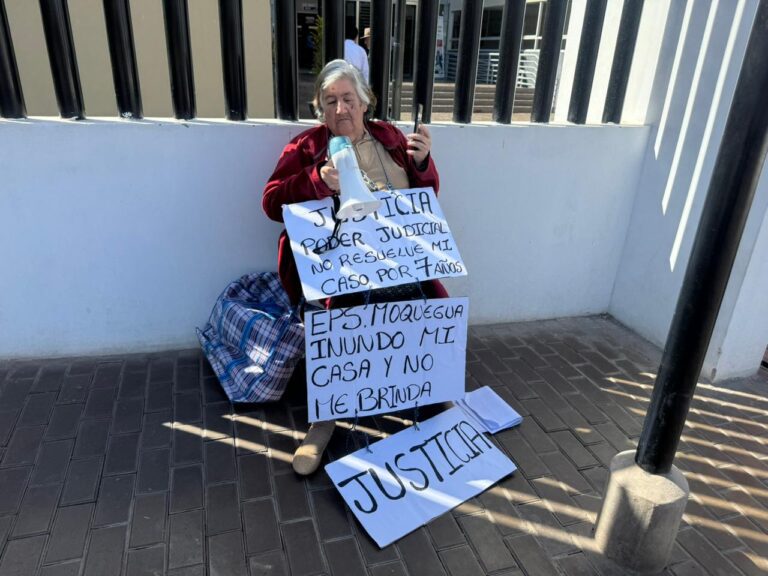 JUSTICIA
PODER JUDICIAL
NO RESUELVE MI
CASO POR 7 AÑOS
EPS. MOQUEGUA
INUNDO MI
CASA Y NO
ME BRINDA
JUSTICIA